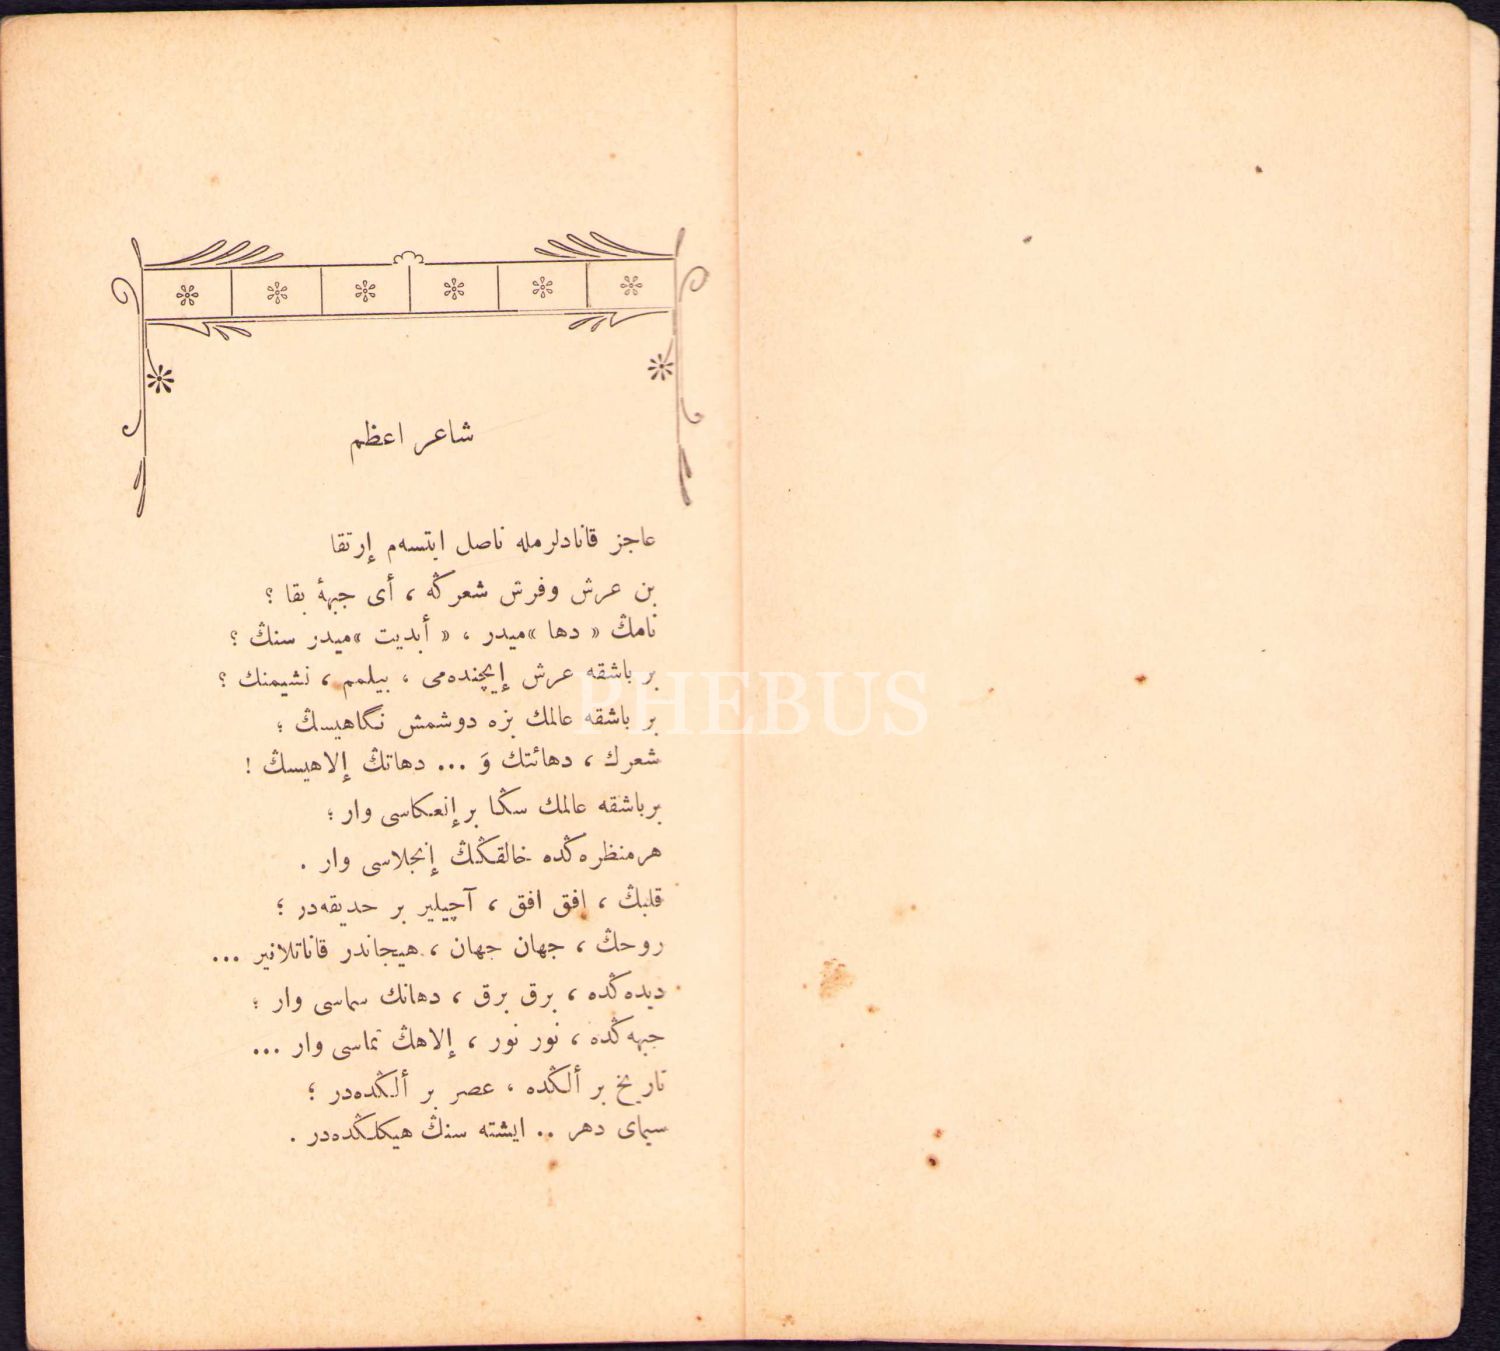 شاعر اعظم
عاجز قانادلرمله ناصل ايتسه‌م إرتقا
بن عرش وفرش شعرڭه ، أى جبههٔ بقا ؟
نامڭ « دها »ميدر ، « أبديت »ميدر سنڭ ؟
بر باشقه عرش إيچنده‌مى ، بيلمم ، نشيمنك ؟
بر باشقه عالمك بزه دوشمش نگاهيسڭ ؛
شعرك ، دهائتك وَ ... دهاتڭ إلاهيسڭ !
برباشقه عالمك سڭا بر إنعكاسى وار ؛
هرمنظره‌ڭده خالقڭڭ إنجلاسى وار .
قلبڭ ، افق افق ، آچيلير بر حديقه‌در ؛
روحڭ ، جهان جهان ، هيجاندر قاناتلانير ...
ديده‌ڭده ، برق برق ، دهانك سماسى وار ؛
جبهه‌ڭده ، نور نور ، إلاهڭ تماسى وار ...
تاريخ بر ألڭده ، عصر بر ألڭده‌در ؛
سيماى دهر .. ايشته سنڭ هيكلڭده‌در .
PHEBUS